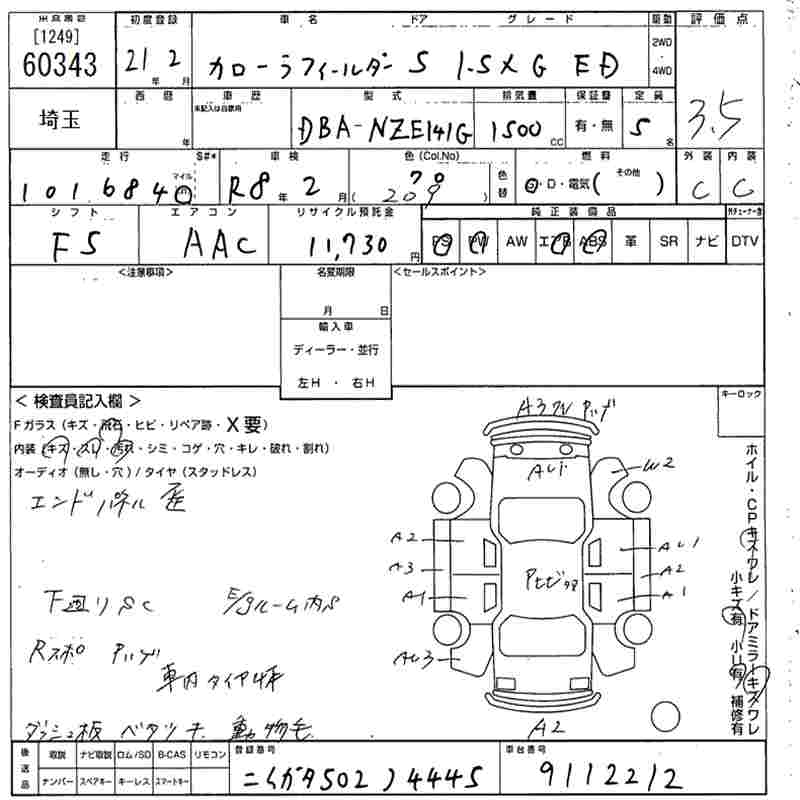 [1249] 初度登録 車名 ドア グレード 駆動 評価点
60343 21年 2月 カローラフィールダー 5 1.5X G ED 2WD・4WD
埼玉 西暦 車歴 型式 排気量 保証書 定員 3.5
年 未記入は自家用 DBA-NZE141G 1500cc 有・無 5名
走行 S#* 車検 色(Col.No) 燃料 外装 内装
101,684 マイル km R8年 2月 ( 209 ) 色替 G・D・電気( その他 ) C C
シフト エアコン リサイクル預託金 純正装備品
F5 AAC 11,730円 PS PW AW エアB ABS 革 SR ナビ DTV
<注意事項> 名変期限 <セールスポイント>
月 日
輸入車
ディーラー・並行
左H・右H
<検査員記入欄> キーロック
Fガラス(キズ・飛石・ヒビ・リペア跡・X要)
内装(キズ・スレ・汚れ・シミ・コゲ・穴・キレ・破れ・割れ)
オーディオ(無し・穴)/タイヤ(スタッドレス)
エンドパネル 歪
下廻りSC E/gルーム内S
Rスポ 車内タイヤ4本
ダッシュ板 ベタツキ 動物毛
AU1 W2
A2 AU1
A3 A2
A1 A1
AU3
A2
ホイル・CPキズワレ/ドアミラーキズワレ
小キズ有 小U有 補修有
後送品 取説 ナビ取説 ロム/SD B-CAS リモコン 登録番号 車台番号
ナンバー スペアキー キーレス スマートキー ニイガタ502 ノ4445 9112212